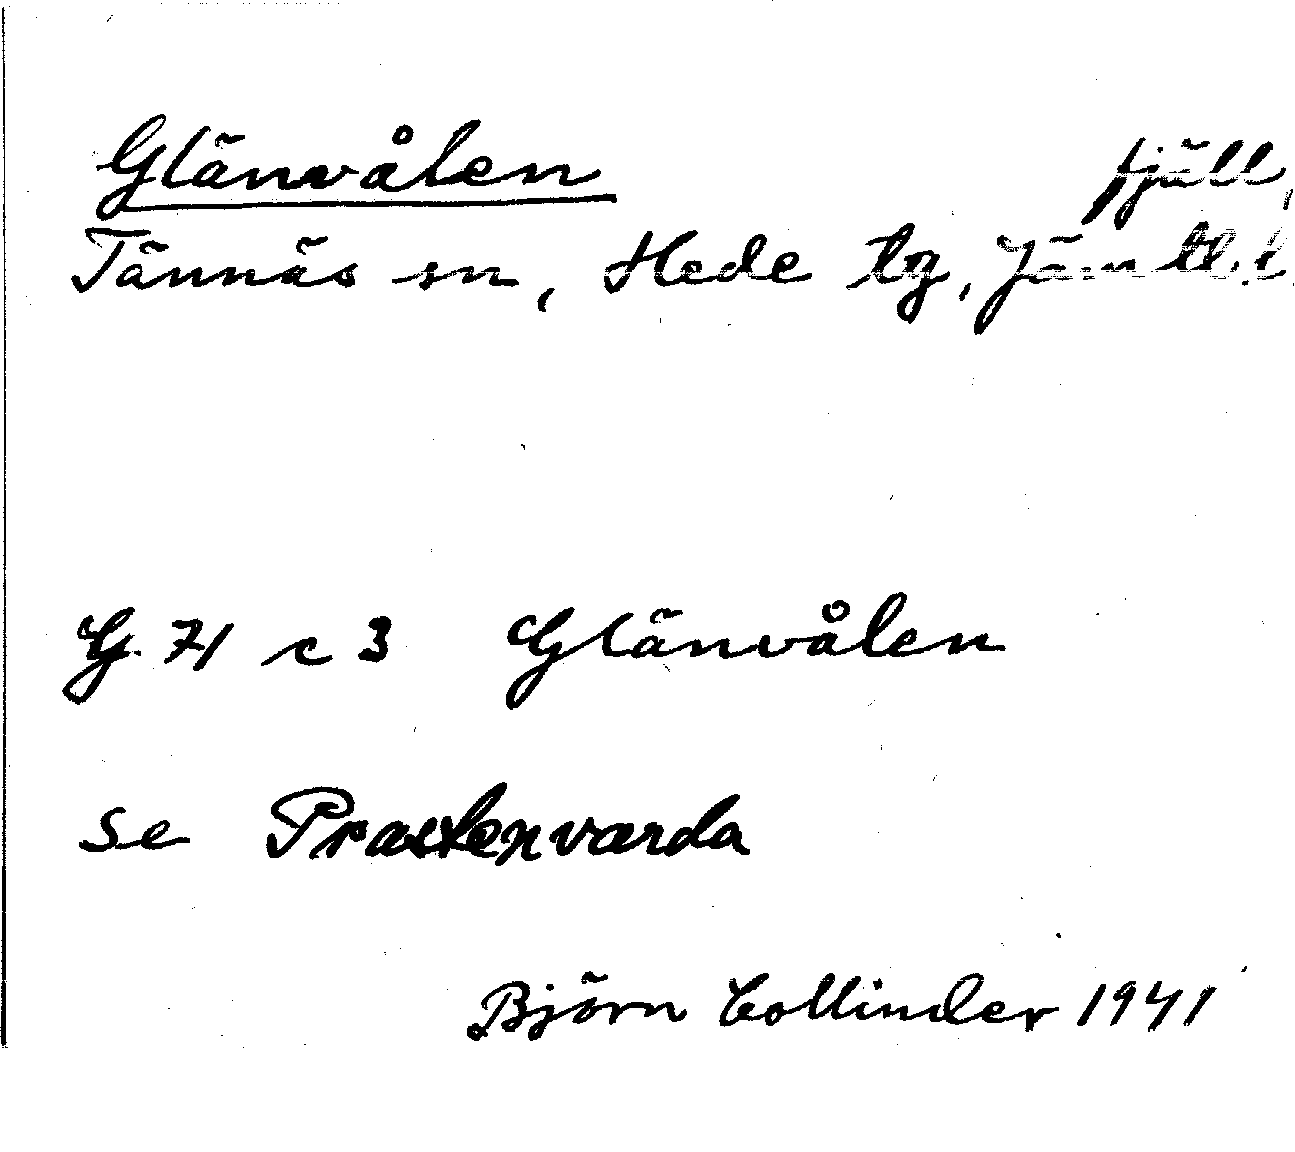 Glänvålen fjäll,
Tännäs sn, Hede tg, Jämtl. l
G. 71 c 3 Glänvålen
se Prastenvarda
Björn Collinder 1941